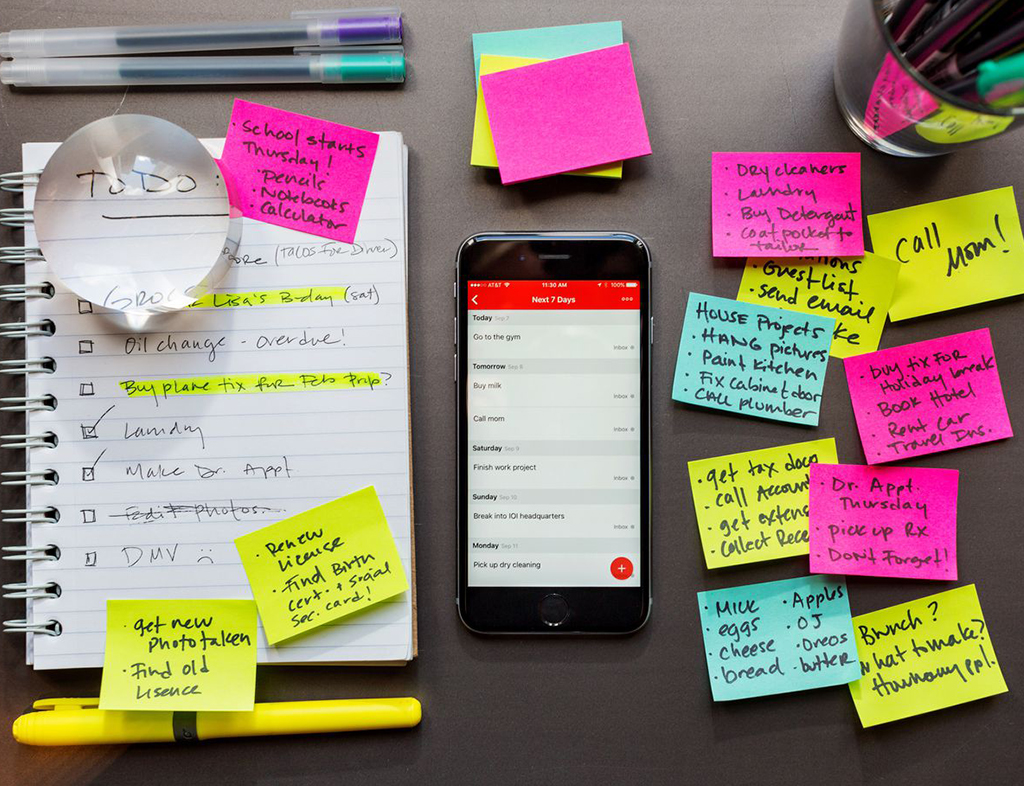 To Do:
ore (TACOS FOR Dinner)
GROC
Lisa's B-day (sat)
Oil change - overdue!
Buy plane tix for Feb Trip?
Laundry
Make Dr. Appt.
Edit Photos.
DMV ☹
• School starts
Thursday!
• Pencils
• Notebooks
• Calculator
• Renew
License
• Find Birth
cert + social
sec. card!
• get new
photo taken
• Find old
lisence
AT&T 11:30 AM 100%
Next 7 Days
Today Sep 7
Go to the gym
Inbox
Tomorrow Sep 8
Buy milk
Inbox
Call mom
Inbox
Saturday Sep 9
Finish work project
Inbox
Sunday Sep 10
Break into IOI headquarters
Inbox
Monday Sep 11
Pick up dry cleaning
+
• Dry cleaners
• Laundry
• Buy Detergent
• Coat pocket to
tailor
Call
Mom!
ations
Guest List
• send email
ke
• HOUSE Projects
• HANG pictures
• Paint Kitchen
• Fix cabinet door
• CALL plumber
• Buy tix FOR
Holiday break
• Book Hotel
• Rent Car
• Travel Ins.
• get tax docs
• call Account
• get extens
• Collect Rece
• Dr. Appt.
Thursday
• pick up Rx
• Don't Forget!
• Milk
• eggs
• cheese
• bread
• Apples
• OJ
• Oreos
• butter
Brunch?
what to make?
How many ppl.